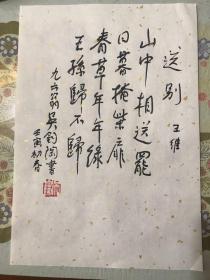 送别 王维
山中相送罷
日暮掩柴扉
春草年年綠
王孫歸不歸
九六翁吳鈞陶書
壬寅初春